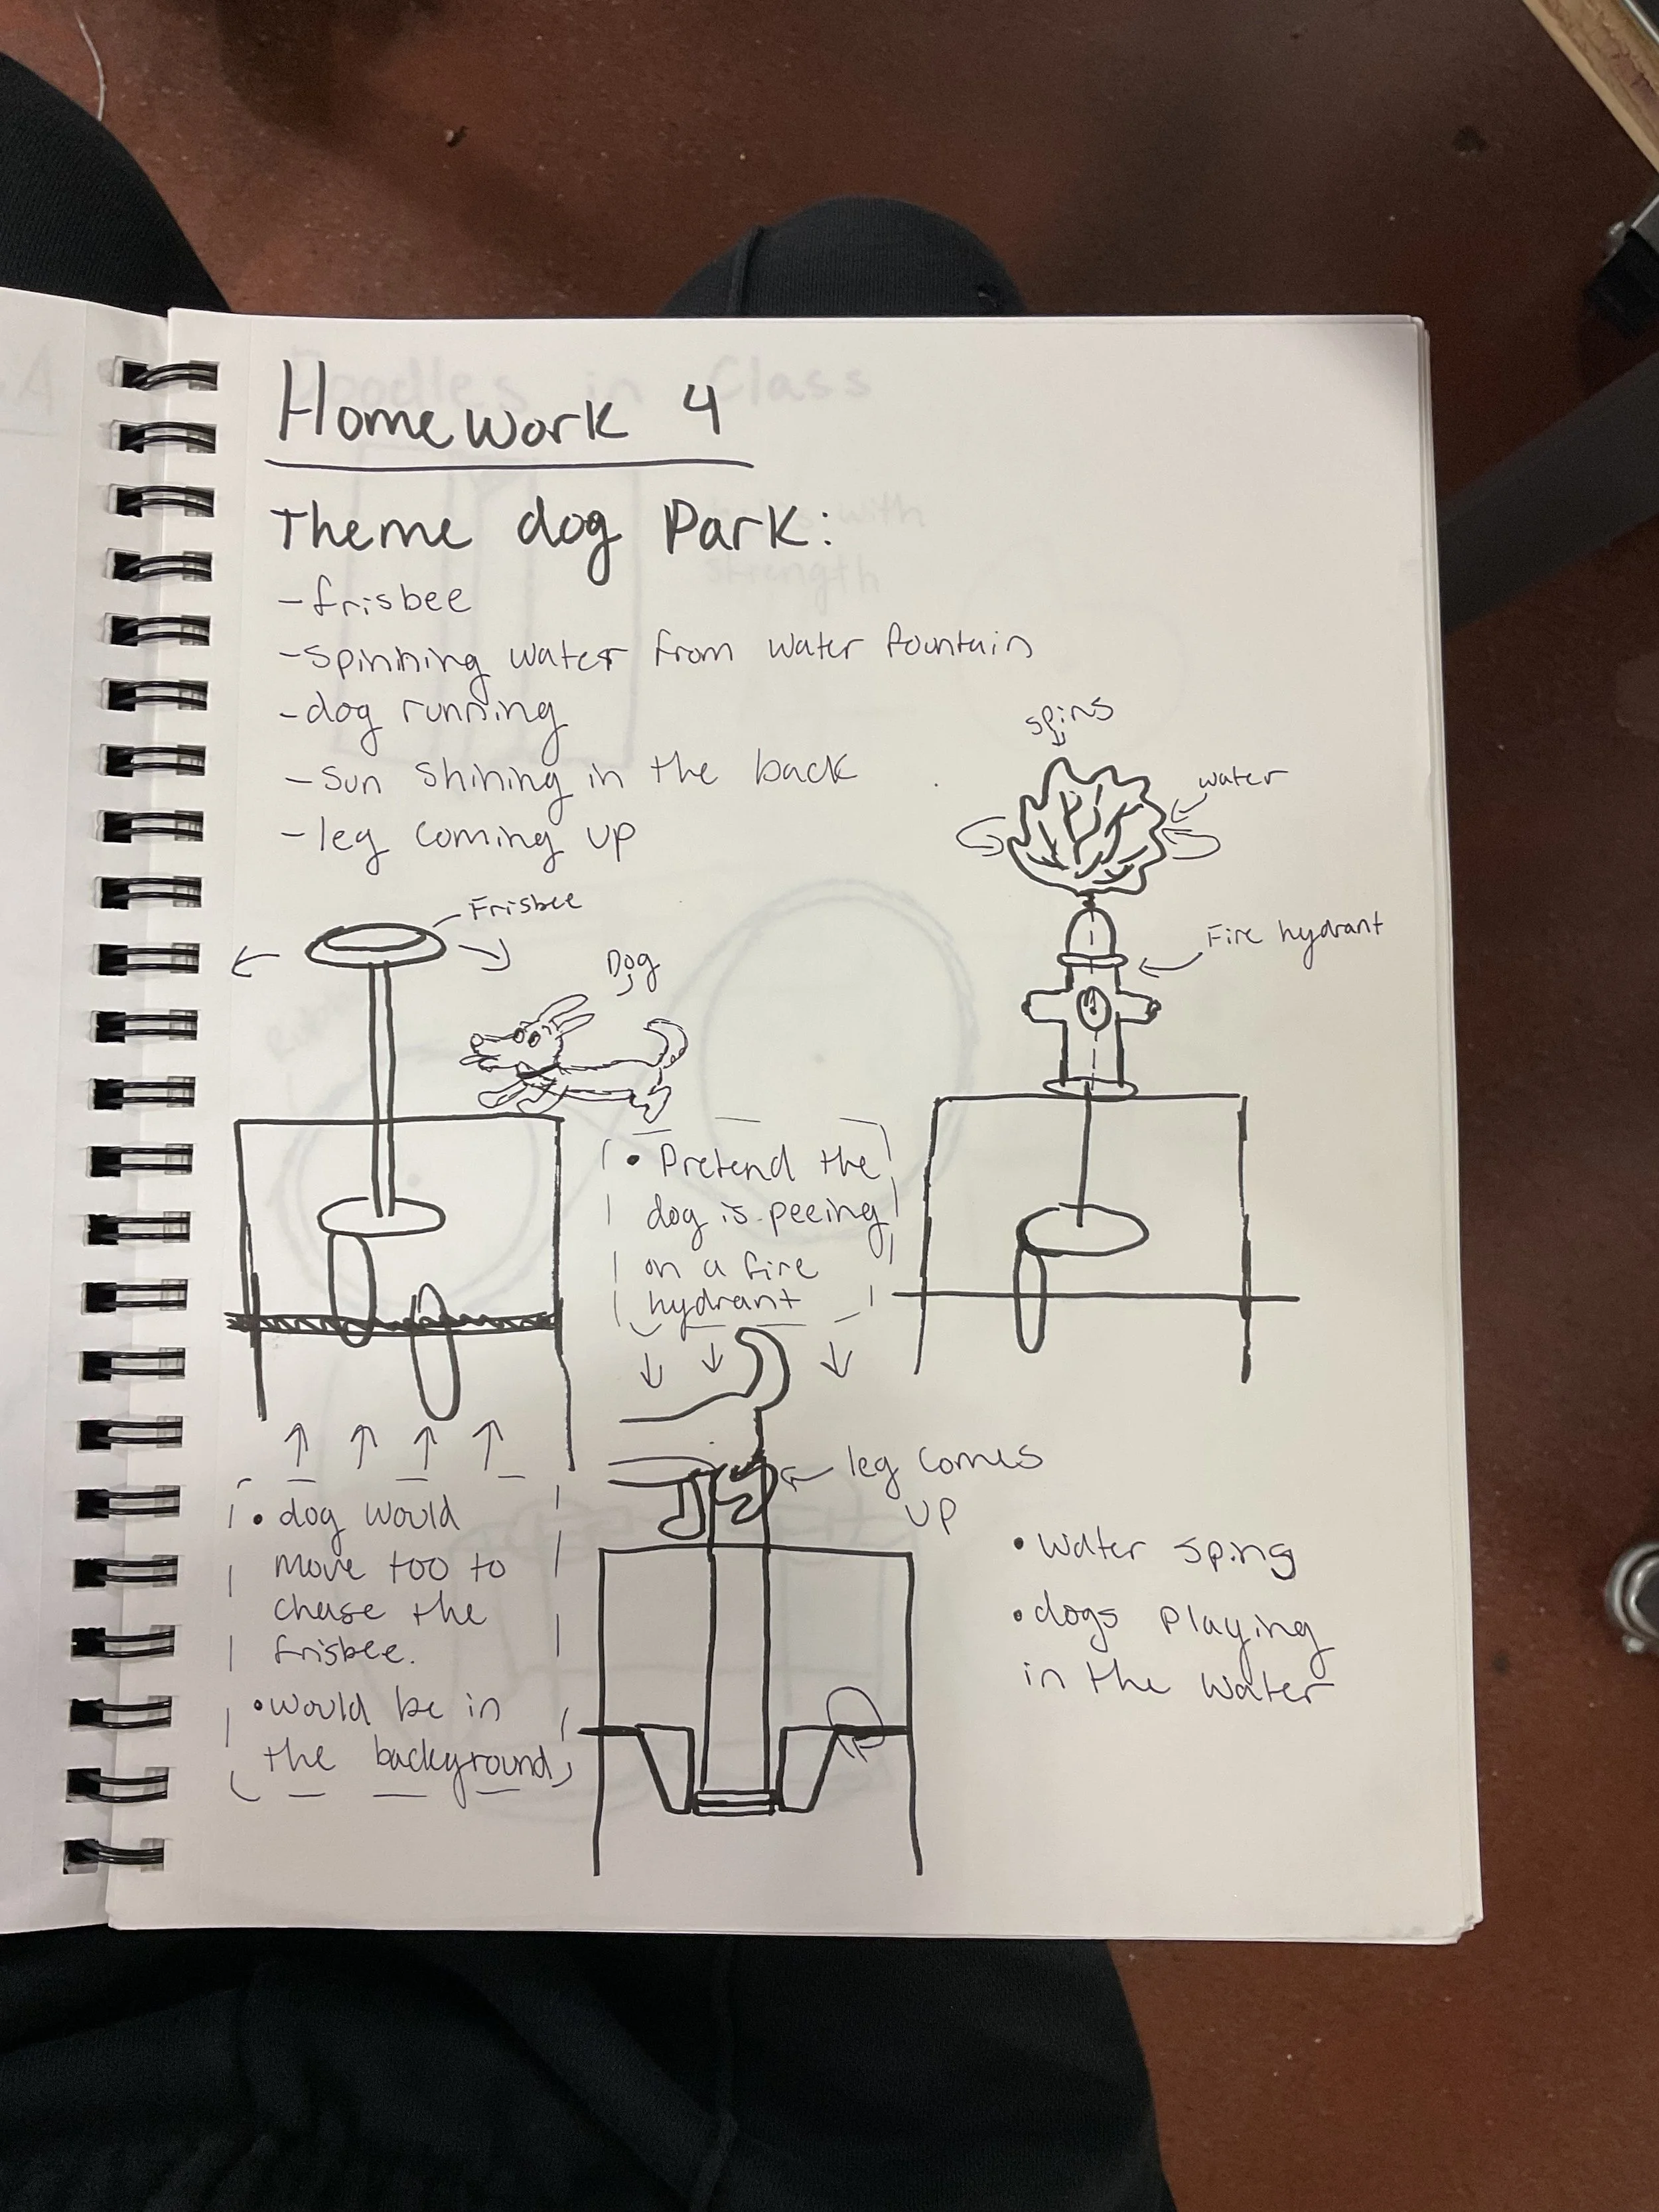 Homework 4
Theme dog Park:
- frisbee
- spinning water from water fountain
- dog running
- sun shining in the back
- leg coming up
spins
water
Fire hydrant
Frisbee
Dog
• Pretend the
dog is peeing
on a fire
hydrant
leg comes
up
• dog would
move too to
chase the
frisbee.
• would be in
the background
• water spins
• dogs playing
in the water
Doodles in Class
with
strength